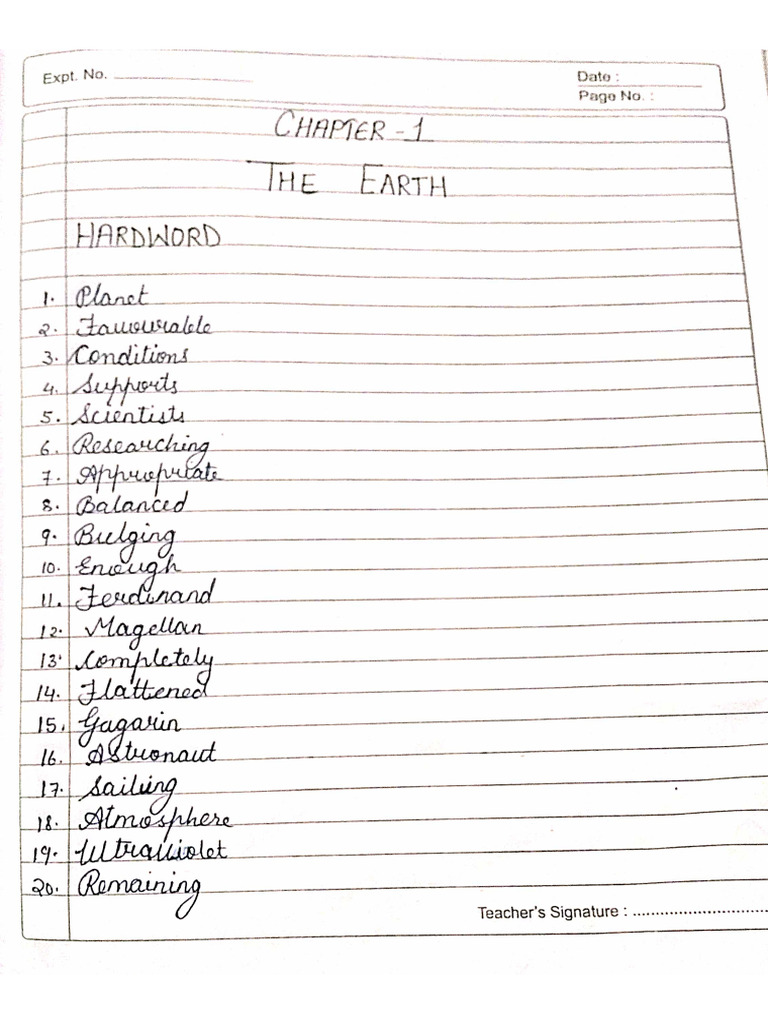 Expt. No.
Date :
Page No. :
CHAPTER - 1
THE EARTH
HARDWORD
1. Planet
2. Favourable
3. Conditions
4. Supports
5. Scientists
6. Researching
7. Appropriate
8. Balanced
9. Bulging
10. Enough
11. Ferdinand
12. Magellan
13. Completely
14. Flattened
15. Gagarin
16. Astronaut
17. Sailing
18. Atmosphere
19. Ultraviolet
20. Remaining
Teacher's Signature :